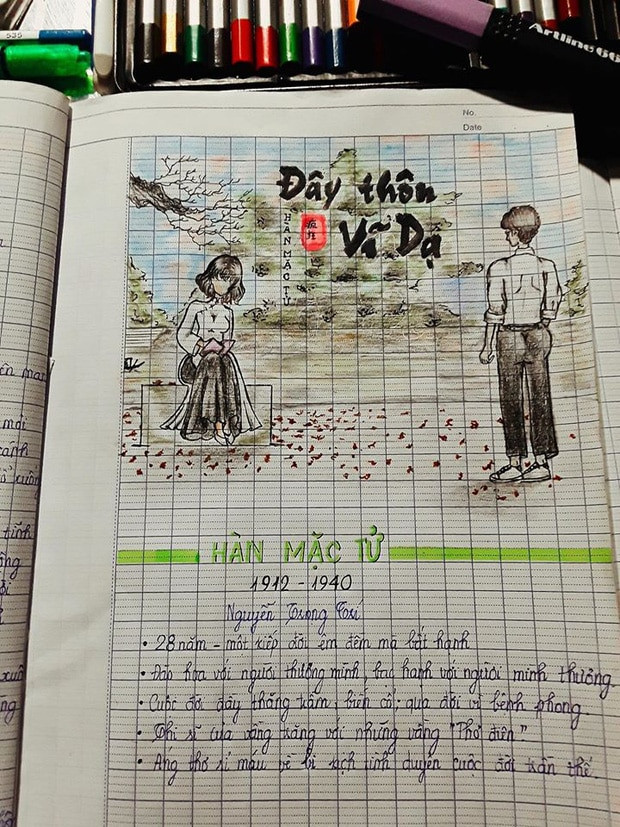 535
Artline 66
No.
Date
Đây thôn
Vĩ Dạ
HÀN MẶC TỬ
HÀN MẶC TỬ
1912 - 1940
Nguyễn Trọng Trí
• 28 năm - một kiếp đời êm đềm mà bất hạnh
• Đào hoa với người thương mình, bạc hạnh với người mình thương
• Cuộc đời đầy thăng trầm, biến cố; qua đời vì bệnh phong.
• Thi sĩ của vầng trăng với những vầng "Thơ điên"
• Áng thơ rỉ máu về bi kịch tình duyên cuộc đời trần thế